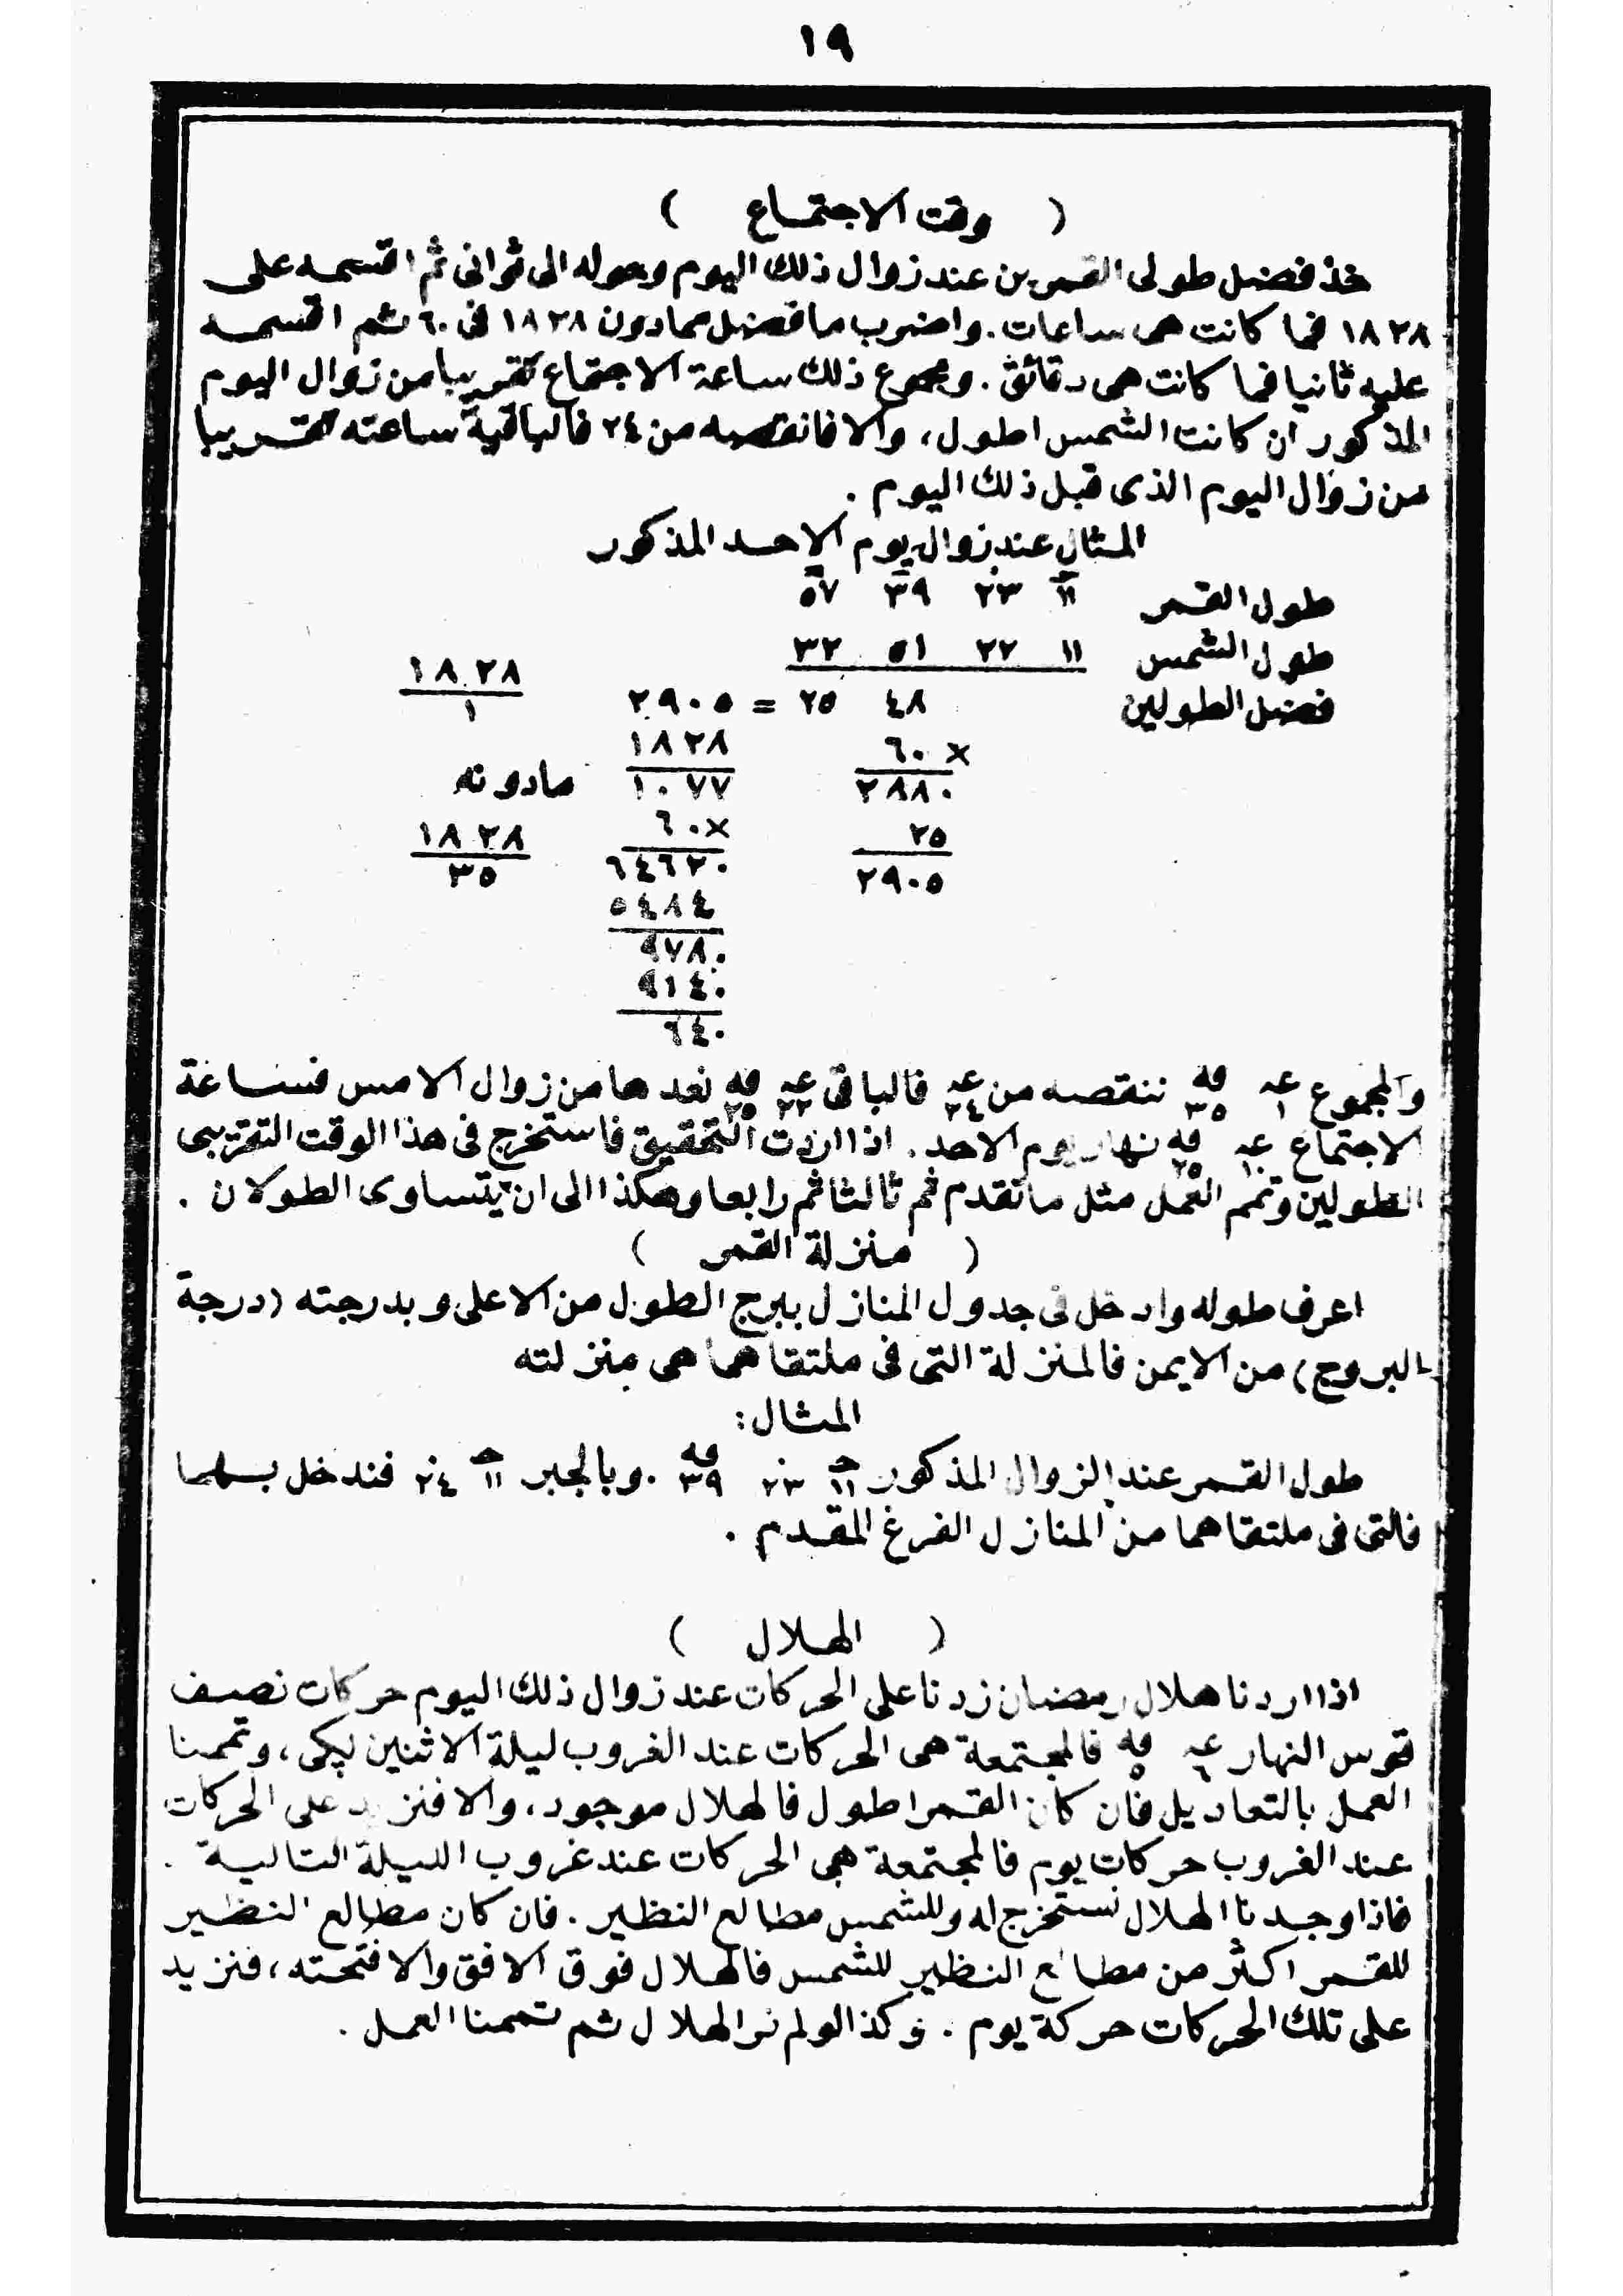 ١٩
( وقت الاجتماع )
خذ فضل طولى القمرين عند زوال ذلك اليوم وحوله الى ثوانى ثم اقسمه على
١٨٢٨ فما كانت هى ساعات. واضرب ما فضل مما دون ١٨٢٨ فى ٦٠ ثم اقسمه
عليه ثانيا فما كانت هى دقائق. ومجموع ذلك ساعة الاجتماع تقريبا من زوال اليوم
المذكور ان كانت الشمس اطول، والا فانقصه من ٢٤ فالباقية ساعته تقريبا
من زوال اليوم الذى قبل ذلك اليوم.
المثال عند زوال يوم الاحد المذكور
طول القمر ١١ ٢٣ ٣٩ ٥٧
طول الشمس ١١ ٢٢ ٥١ ٣٢
١٨٢٨
فضل الطولين ٤٨ ٢٥ = ٢٩٠٥ ١
× ٦٠ ١٨٢٨
٢٨٨٠ ١٠٧٧ مادونه
٢٥ ×٦٠ ١٨٢٨
٢٩٠٥ ٦٤٦٢٠ ٣٥
٥٤٨٤
٩٧٨٠
٩١٤٠
٦٤٠
والمجموع عه ١ قه ٣٥ ننقصه من عه ٢٤ فالباقى عه ٢٢ قه ٢٥ نعدها من زوال الامس فساعة
الاجتماع عه ١٠ قه ٢٥ نهار يوم الاحد. اذا اردت التحقيق فاستخرج فى هذا الوقت التقريبى
الطولين وتمم العمل مثل ما تقدم ثم ثالثا ثم رابعا وهكذا الى ان يتساوى الطولان.
( منزلة القمر )
اعرف طوله وادخل فى جدول المنازل ببرج الطول من الاعلى وبدرجته (درجة
البروج) من الايمن فالمنزلة التى فى ملتقاهما هى منزلته
المثال:
طول القمر عند الزوال المذكور ١١ ٢٣ قه ٣٩. وبالجبر ١١ ٢٤ فندخل بهما
فالتى فى ملتقاهما من المنازل الفرغ المقدم.
( الهلال )
اذا اردنا هلال رمضان زدنا على الحركات عند زوال ذلك اليوم حركات نصف
قوس النهار عه ٦ قه ٥ فالمجتمعة هى الحركات عند الغروب ليلة الاثنين ليكى، وتممنا
العمل بالتعاديل فان كان القمر اطول فالهلال موجود، والا فنزيد على الحركات
عند الغروب حركات يوم فالمجتمعة هى الحركات عند غروب الليلة التالية.
فاذا وجدنا الهلال نستخرج له وللشمس مطالع النظير. فان كان مطالع النظير
للقمر اكثر من مطالع النظير للشمس فالهلال فوق الافق والا فتحته، فنزيد
على تلك الحركات حركة يوم. وكذا لو لم نر الهلال ثم تممنا العمل.